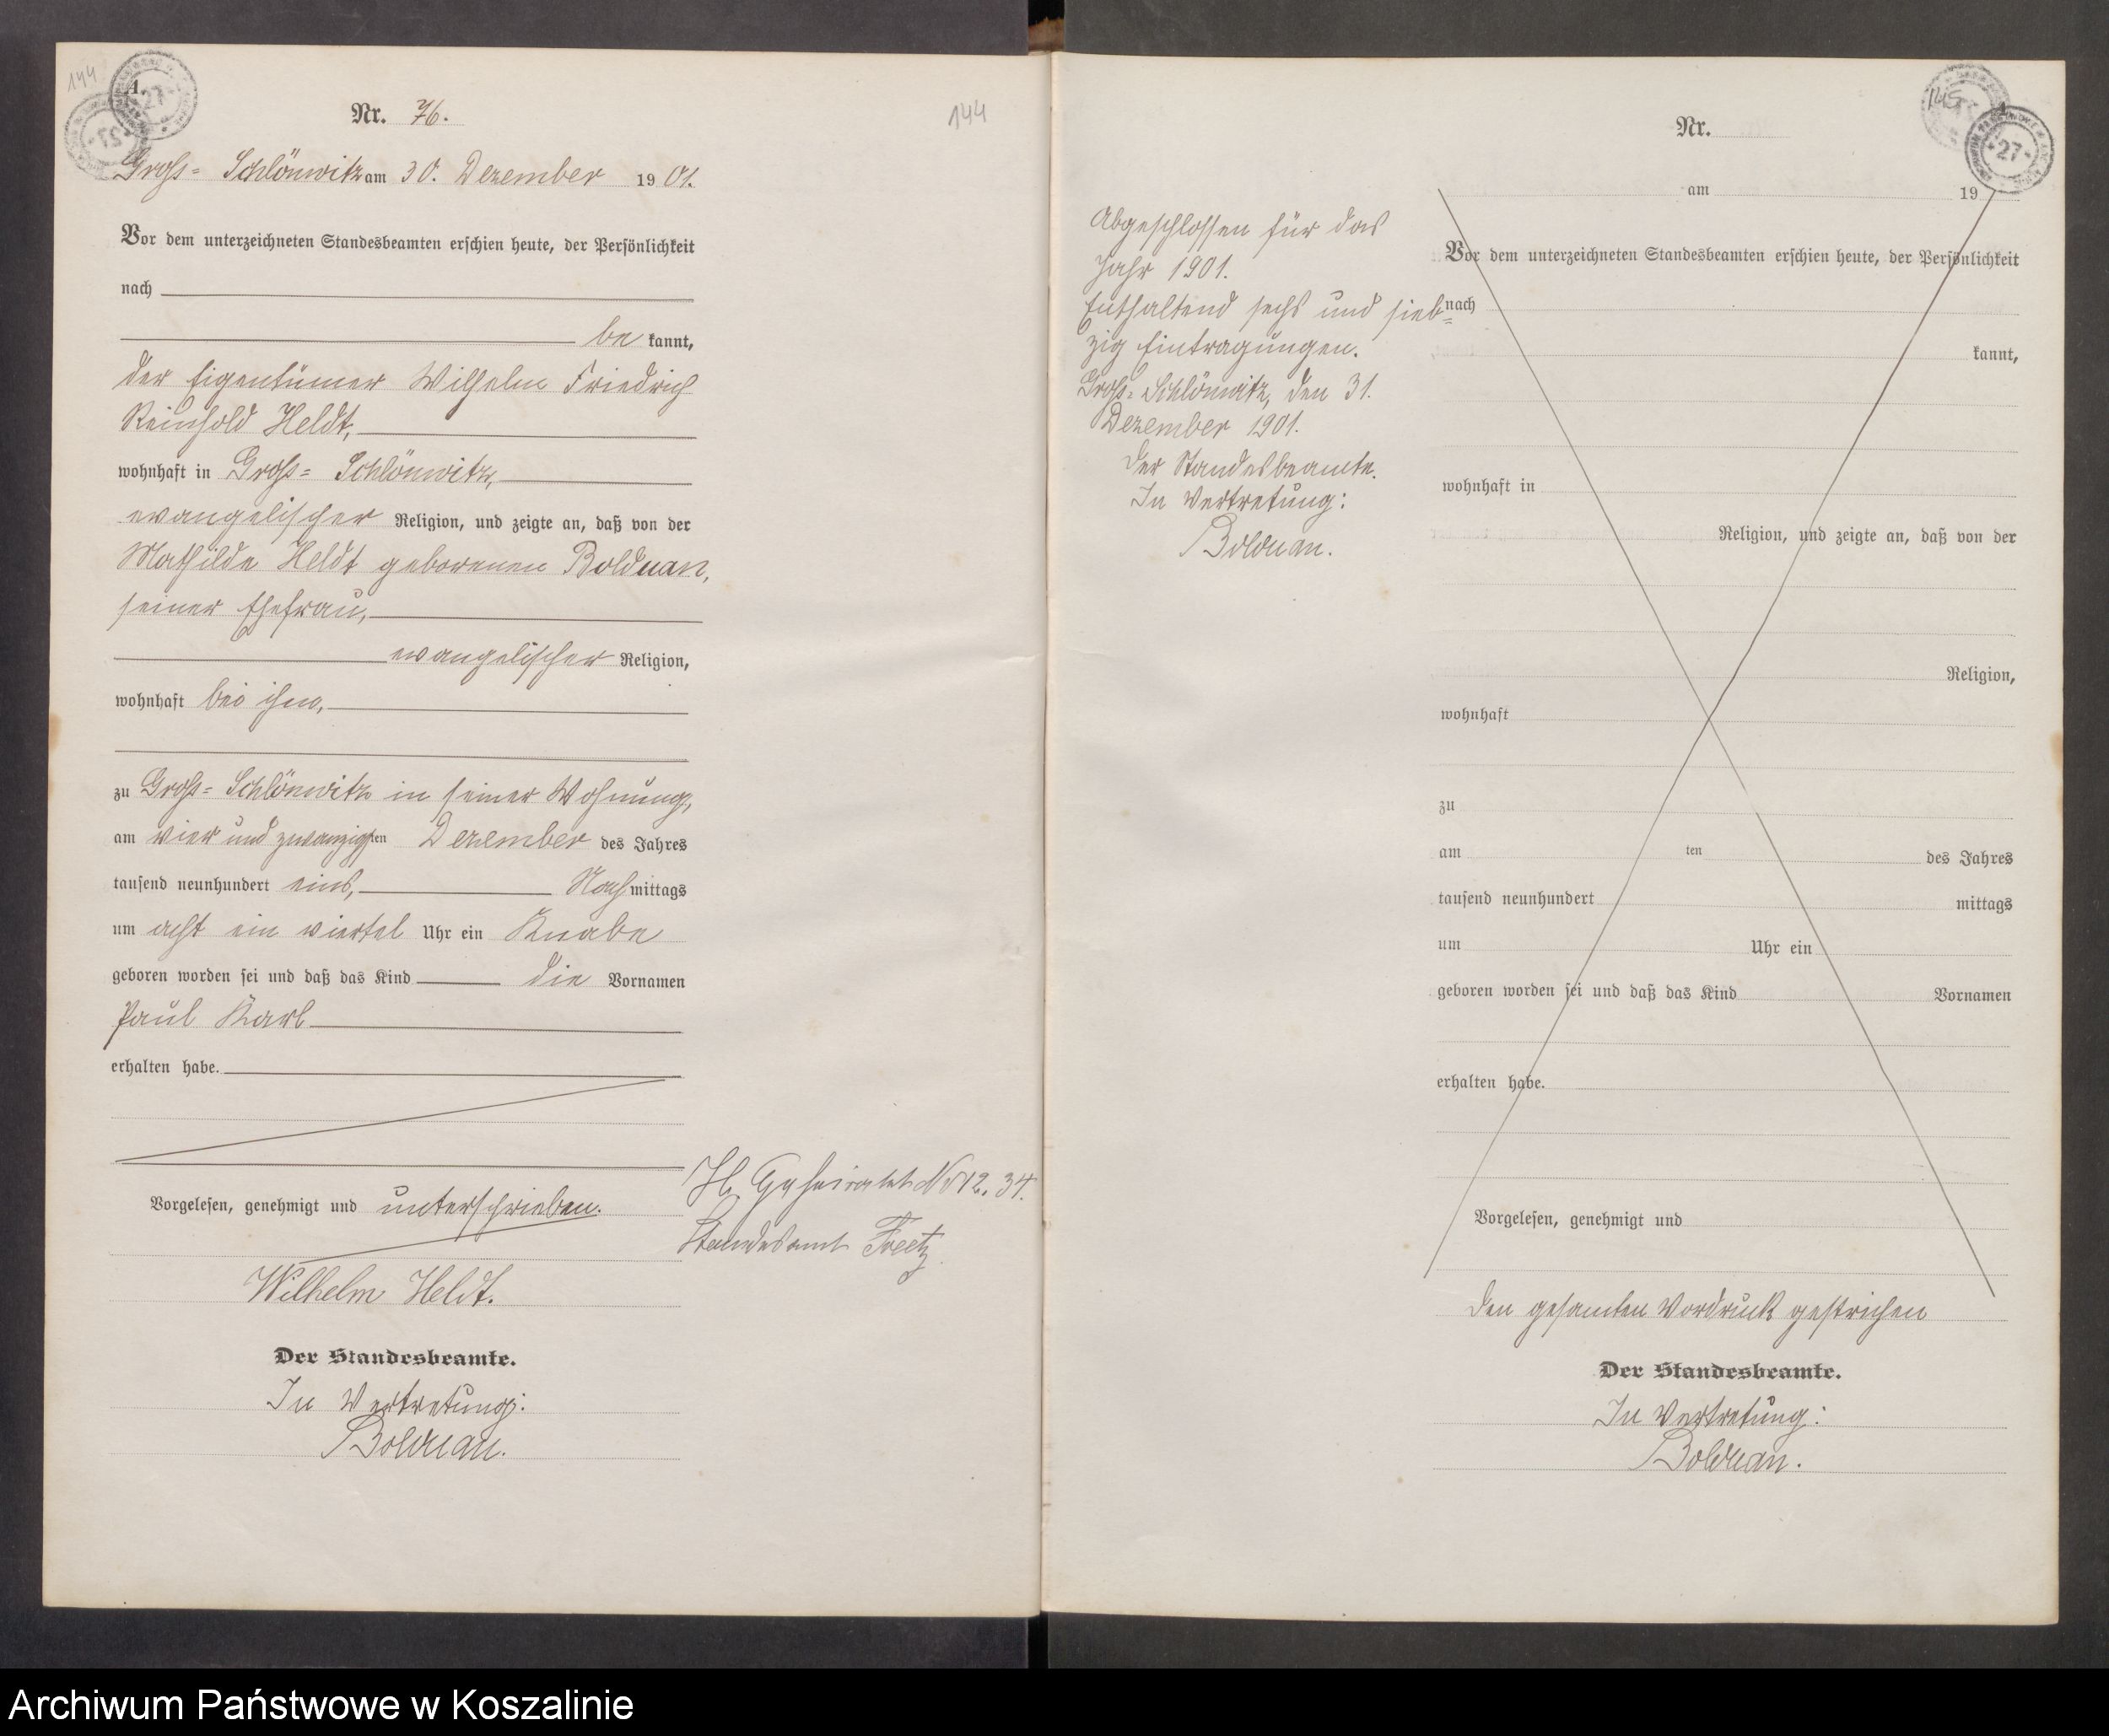 144
A.
27
Nr. 76.
144
Groß= Schlönwitz am 30. Dezember 1901.
Vor dem unterzeichneten Standesbeamten erschien heute, der Persönlichkeit
nach
be kannt,
der Eigentümer Wilhelm Friedrich
Reinhold Heldt,
wohnhaft in Groß= Schlönwitz,
evangelischer Religion, und zeigte an, daß von der
Mathilde Heldt geborenen Bolduan,
seiner Ehefrau,
evangelischer Religion,
wohnhaft bei ihm,
zu Groß= Schlönwitz in seiner Wohnung,
am vier und zwanzigsten Dezember des Jahres
tausend neunhundert eins, Nachmittags
um acht ein viertel Uhr ein Knabe
geboren worden sei und daß das Kind die Vornamen
Paul Karl
erhalten habe.
Vorgelesen, genehmigt und unterschrieben.
Wilhelm Heldt.
Der Standesbeamte.
In Vertretung:
Bolduan.
Nr 12. 34.
Standesamt
145
A.
27
Nr.
am 19
Abgeschlossen für das
Jahr 1901.
Enthaltend sechs und sieb=
zig Eintragungen.
Groß= Schlönwitz, den 31.
Dezember 1901.
Der Standesbeamte.
In Vertretung:
Bolduan.
Vor dem unterzeichneten Standesbeamten erschien heute, der Persönlichkeit
nach
kannt,
wohnhaft in
Religion, und zeigte an, daß von der
Religion,
wohnhaft
zu
am ten des Jahres
tausend neunhundert mittags
um Uhr ein
geboren worden sei und daß das Kind Vornamen
erhalten habe.
Vorgelesen, genehmigt und
Den gesamten Vordruck gestrichen
Der Standesbeamte.
In Vertretung:
Bolduan.
Archiwum Państwowe w Koszalinie